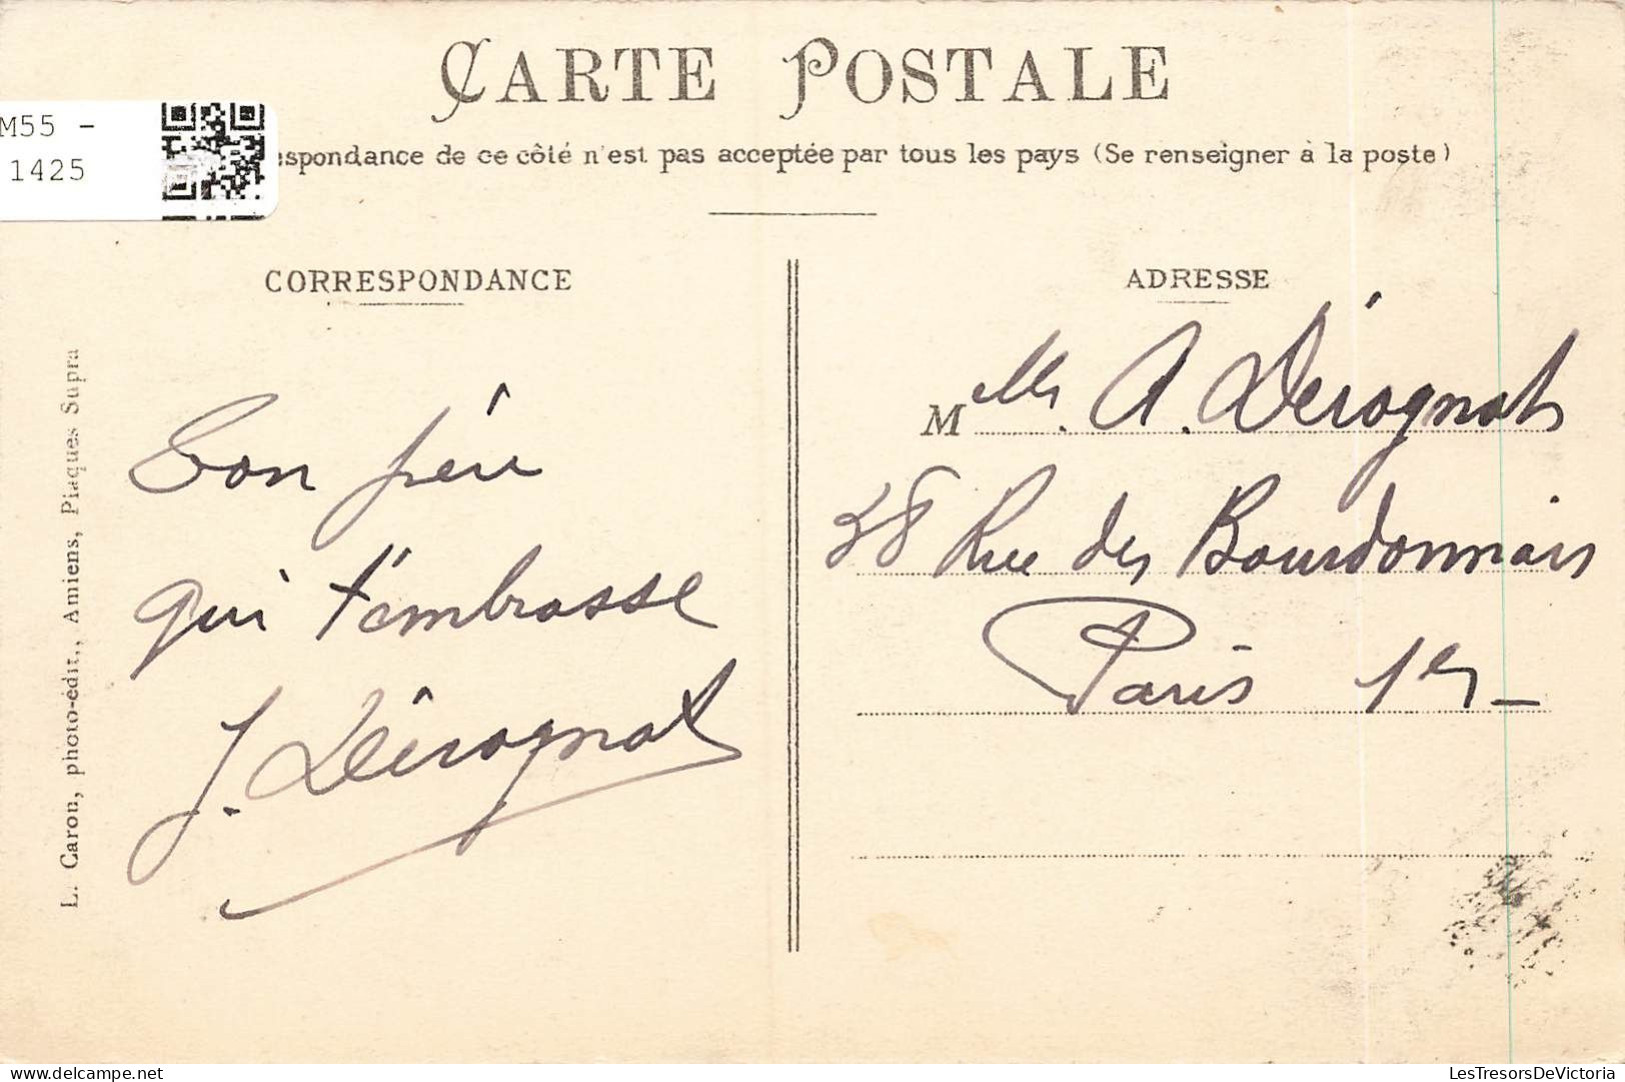 CARTE POSTALE
M55 -
1425
espondance de ce côté n'est pas acceptée par tous les pays (Se renseigner à la poste)
CORRESPONDANCE
ADRESSE
L. Caron, photo-édit., Amiens, Plaques Supra
Ton père
qui t'embrasse
J. Dérognat
Melle. A. Dérognat
38 Rue des Bourdonnais
Paris 1er
LesTresorsDeVictoria
delcampe.net